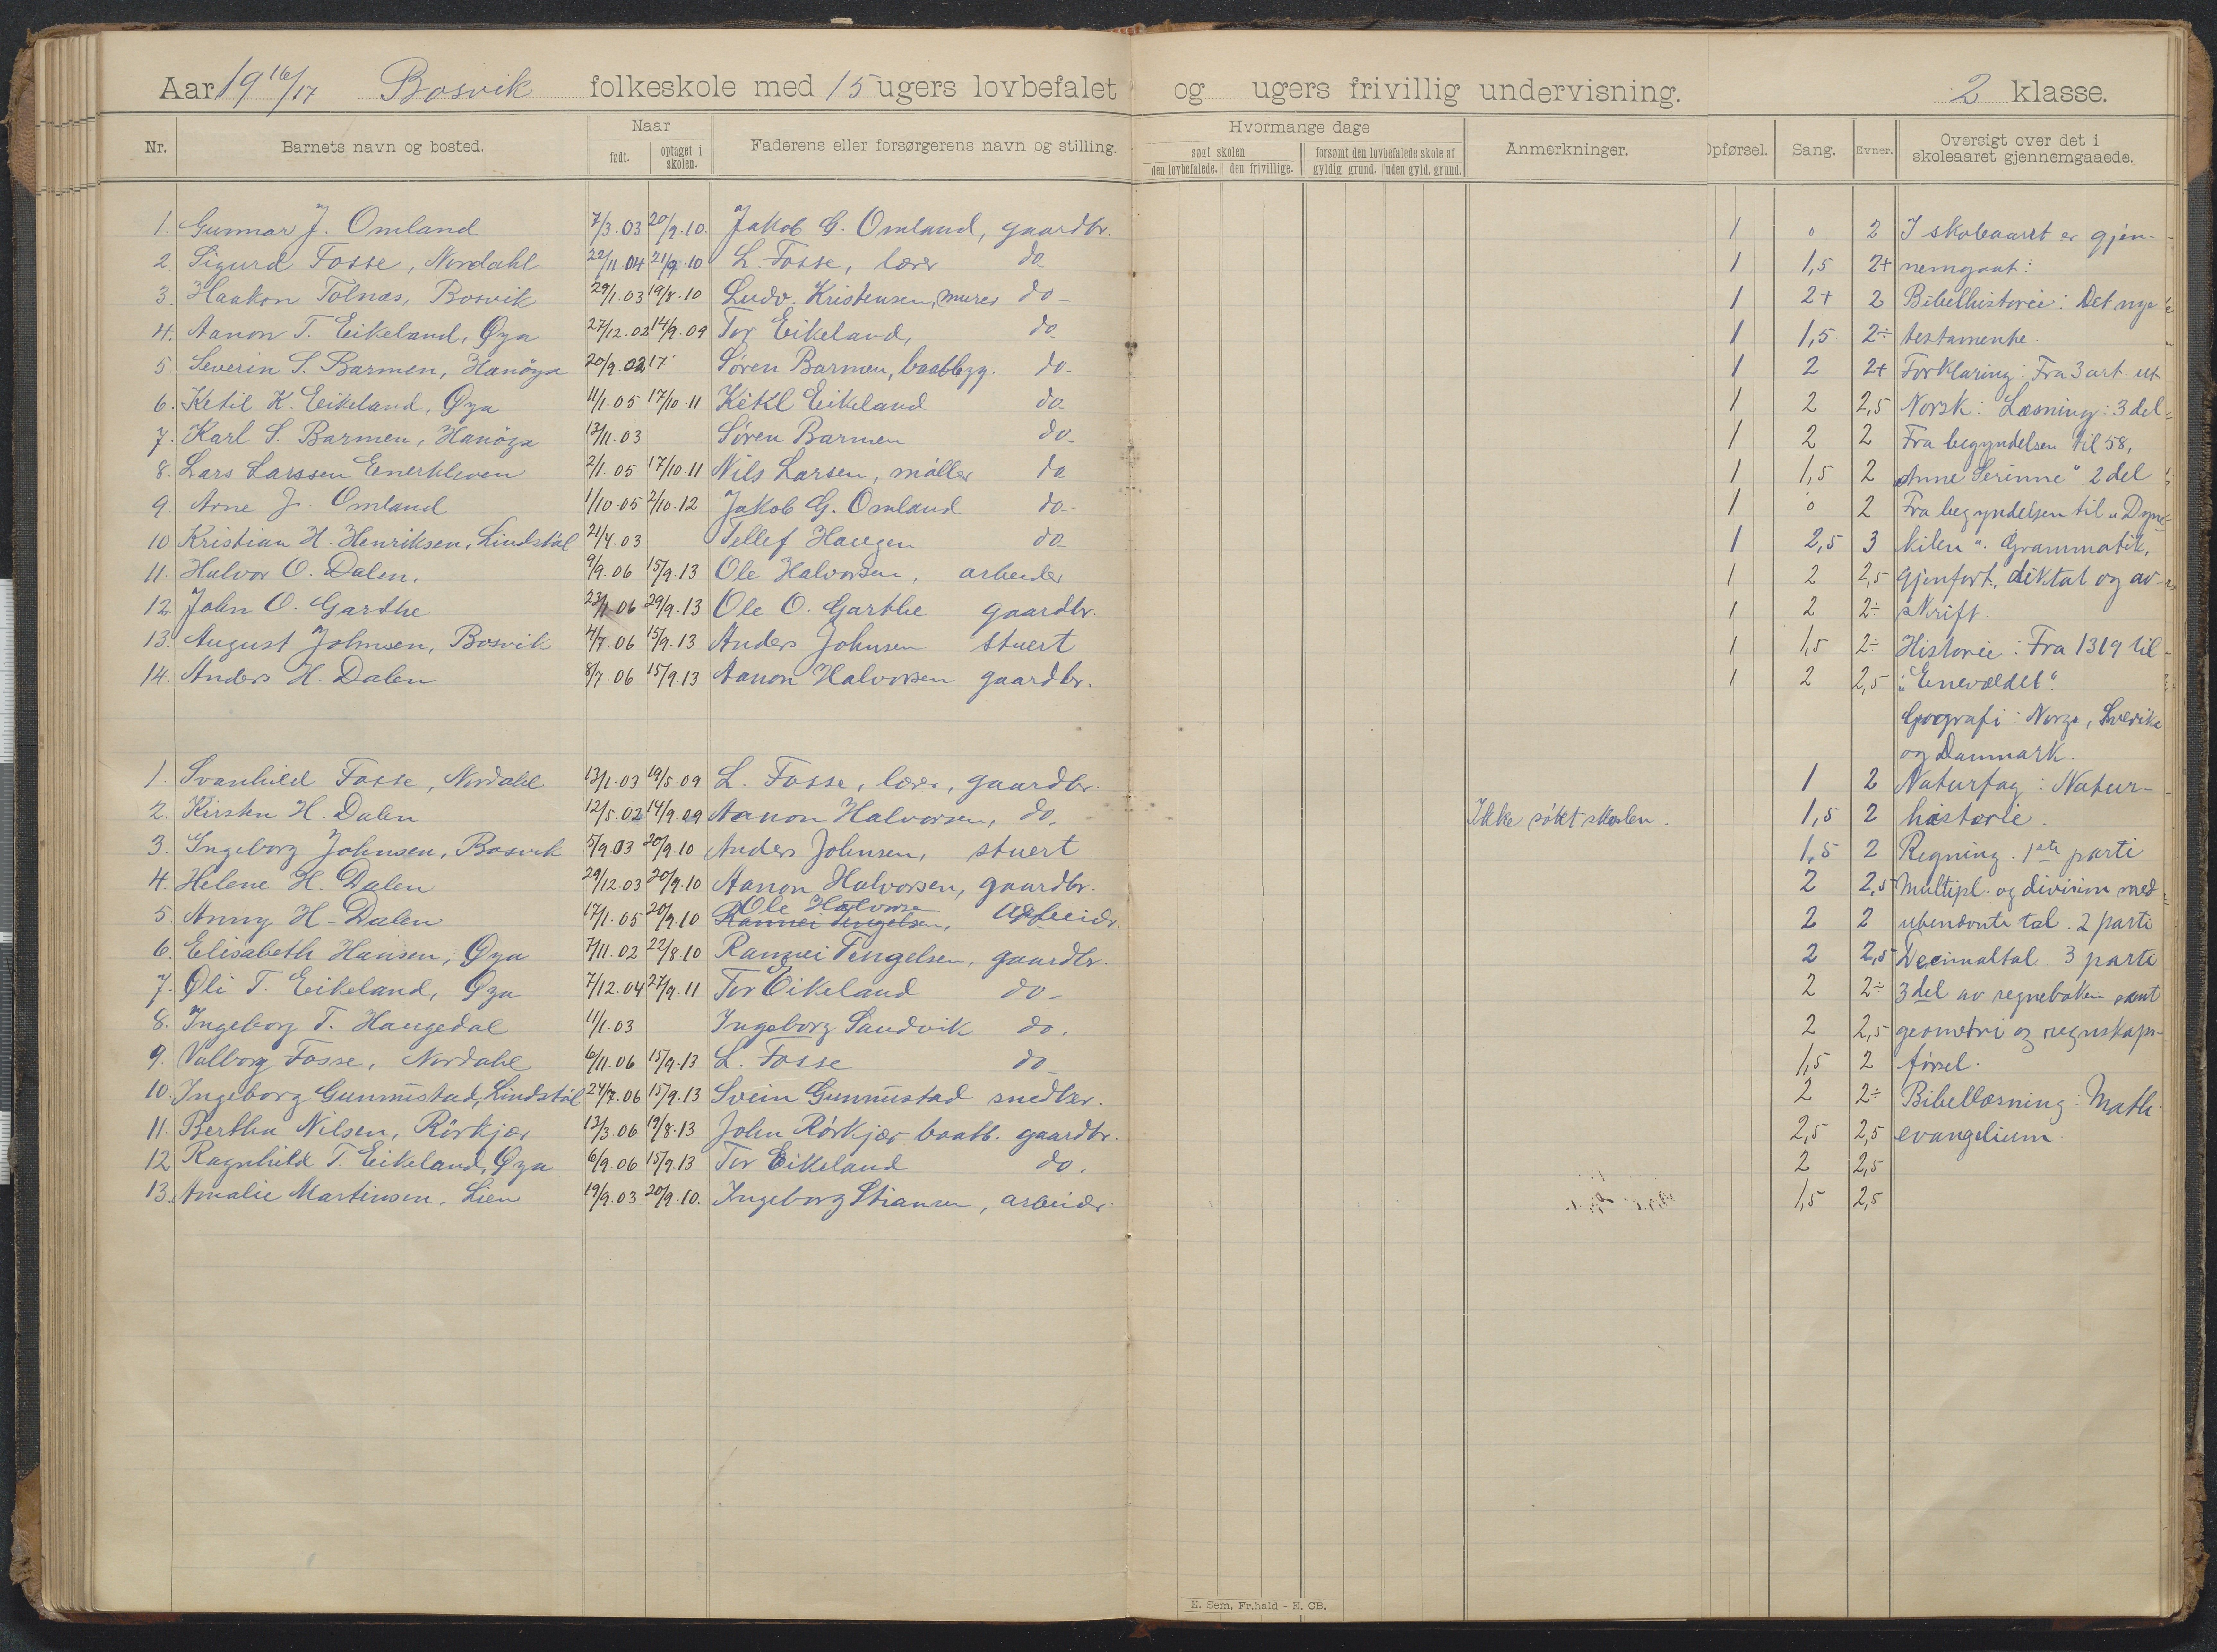 Aar 19 16/17 Bosvik folkeskole med 15 ugers lovbefalet og ugers frivillig undervisning. 2 klasse.
Nr. Barnets navn og bosted. Naar født. optaget i skolen. Faderens eller forsørgerens navn og stilling. Hvormange dage søgt skolen den lovbefalede. den frivillige. forsømt den lovbefalede skole af gyldig grund. uden gyld. grund. Anmerkninger. Opførsel. Sang. Evner. Oversigt over det i skoleaaret gjennemgaaede.
1. Gunnar J. Omland 7/3.03 20/9.10. Jakob G. Omland, gaardbr. 1 0 2 I skoleaaret er gjen-
2. Sigurd Fosse, Nordahl 22/11.04 21/9.10 L. Fosse, lærer do 1 1,5 2+ nemgaat:
3. Haakon Tolnæs, Bosvik 29/1.03 19/8.10 Ludv. Kristensen, murer do- 1 2+ 2 Bibelhistorie: Det nye
4. Aanon T. Eikeland, Øya 27/12.02 14/9.09 Tor Eikeland, do- 1 1,5 2÷ testamente.
5. Severin S. Barmen, Hanöya 20/9.02 17 Søren Barmen, baatbygg. do- 1 2 2+ Forklaring: Fra 3 art. ut
6. Ketil K. Eikeland, Øya 11/1.05 17/10.11 Ketil Eikeland do- 1 2 2,5 Norsk: Læsning: 3 del
7. Karl S. Barmen, Hanöya 13/11.03 Søren Barmen do- 1 2 2 Fra begyndelsen til 58,
8. Lars Larssen Enerkleven 2/1.05 17/10.11 Nils Larsen, møller do 1 1,5 2 "Anne Serinne". 2 del
9. Arne J. Omland 1/10.05 2/10.12 Jakob G. Omland do- 1 0 2 Fra begyndelsen til "Dyne-
10 Kristian H. Henriksen, Lindstøl 21/4.03 Tellef Haugen do- 1 2,5 3 kilen". Grammatik,
11. Halvor O. Dalen. 9/9.06 15/9.13 Ole Halvorsen, arbeider 1 2 2,5 gjenfort., diktat og av-
12 John O. Garthe 23/1.06 29/9.13 Ole O. Garthe gaardbr. 1 2 2÷ skrift.
13. August Johnsen, Bosvik 4/7.06 15/9.13 Anders Johnsen stuert 1 1,5 2÷ Historie: Fra 1319 til
14. Anders H. Dalen 8/7.06 15/9.13 Aanon Halvorsen gaardbr. 1 2 2,5 "Enevældet".
Geografi: Norge, Sverike
og Danmark.
1. Svanhild Fosse, Nordahl 13/1.03 19/5.09 L. Fosse, lærer, gaardbr. 1 2 Naturfag: Natur-
2. Kirsten H. Dalen 12/5.02 14/9.09 Aanon Halvorsen, do. Ikke søkt skolen. 1,5 2 historie.
3. Ingeborg Johnsen, Bosvik 5/9.03 20/9.10 Anders Johnsen, stuert 1,5 2 Regning. 1ste parti
4. Helene H. Dalen 29/12.03 20/9.10 Aanon Halvorsen, gaardbr. 2 2,5 Multipl. og division med
5. Anny H. Dalen 17/1.05 20/9.10 Ole Halvorsen Rannei Tengelsen, Arbeider 2 2 ubenævnte tal. 2 parti
6. Elisabeth Hansen, Øya 7/11.02 22/8.10 Rannei Tengelsen, gaardbr. 2 2,5 Decimaltal. 3 parti
7. Oli T. Eikeland, Øya 7/12.04 27/9.11 Tor Eikeland do- 2 2÷ 3 del av regneboken samt
8. Ingeborg T. Haugedal 11/1.03 Ingeborg Sandvik do. 2 2,5 geometri og regnskaps-
9. Valborg Fosse, Nordahl 6/11.06 15/9.13 L. Fosse do- 1,5 2 førsel.
10. Ingeborg Gunnüstad, Lindstøl 24/7.06 15/9.13 Svein Gunnüstad snedker. 2 2÷ Bibellæsning: Math.
11. Bertha Nilsen, Rörkjær 13/3.06 19/8.13 John Rörkjær baatb. gaardbr. 2,5 2,5 evangelium.
12 Ragnhild T. Eikeland, Øya 6/9.06 15/9.13 Tor Eikeland do. 2 2,5
13. Amalie Martinsen, Lien 19/9.03 20/9.10. Ingeborg Stiansen, arbeider 1,5 2,5
E. Sem, Fr.hald - E. CB.